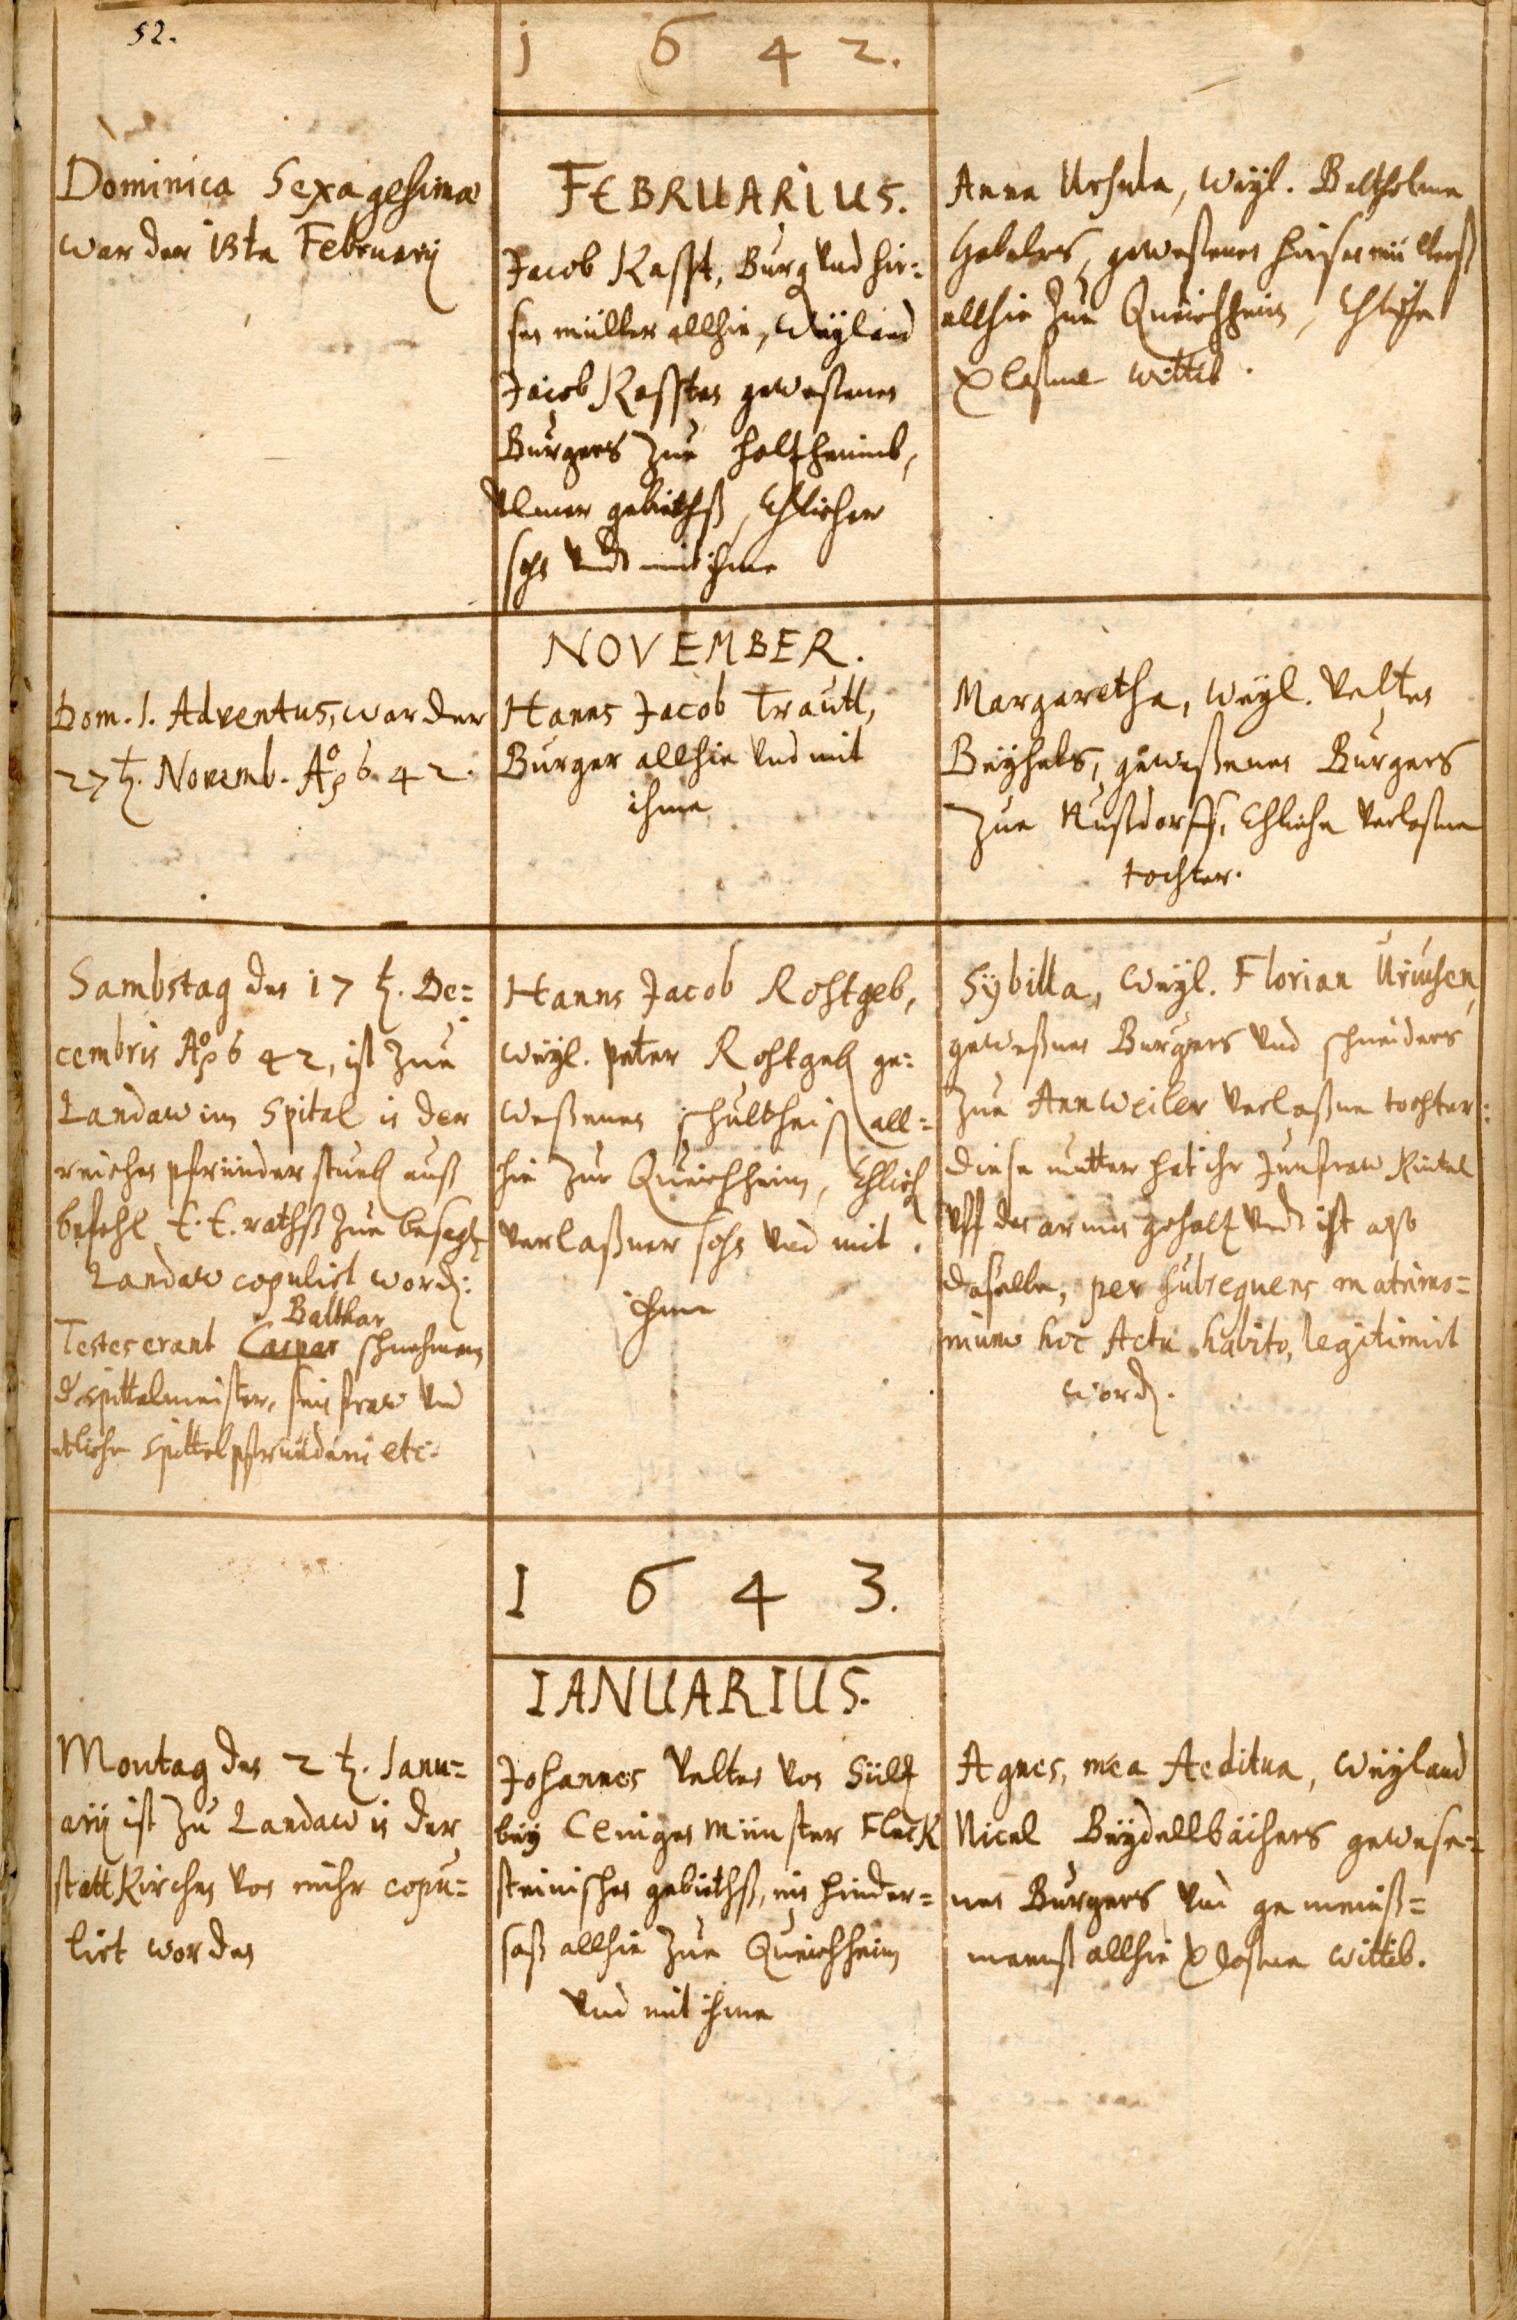 52.
1 6 4 2.
Dominica Sexagesimæ
war der 13te Februarij
FEBRUARIUS.
Jacob Rasst, Burg und hir=
sen müller allhie, Weyland
Jacob Rassten gewessenen
Burgers zue holtzheimb,
Ulmer gebiethß, Ehlicher
sohn undt mit ihme
Anna Ursula, Weyl. Baltholme
Gablers, gewessenen hirsenmüllerß
allhie zue Queichheim, Ehliche
Vlaßene wittib.
Dom. 1. Adventus, war der
27t. Novemb. Ao 642.
NOVEMBER.
Hanns Jacob Trautt,
Burger allhie und mit
ihme
Margaretha, Weyl. Velten
Beyhels, gewessenen Burgers
zue Nußdorff, Ehliche verlaßene
tochter.
Sambstag den 17t. De=
cembris Ao 642, ist zue
Landaw im Spital in der
reichen pfründer stueb auß
befehl E. E. rathß zue besagt
Landaw copulirt word:
Balthar
Testes erant Caspar schuhman
d spittalmeister, sein fraw und
etliche spittelpfründeni etc.
Hanns Jacob Rohtgeb,
Weyl. peter Rohtgeb ge=
weßenen schultheiß all=
hie zue Queichheim, Ehlich
verlaßner sohn und mit
ihme
Sybilla, Weyl. Florian
geweßnen Burgers und schneiders
zue Annweiler verlaßne tochter:
Diese mutter hat ihr Junfraw Kindel
uff den armen gehalt undt ist also
daselbe, per subsequens matrimo=
nium hoc Actu habito, legitimirt
word.
1 6 4 3.
IANUARIUS.
Montag den 2t. Janu=
arij ist zu Landaw in der
statt Kirchen von mihr copu=
lirt worden
Johannes Velten von Sültz
bey Clenigen Münster Fleck
steinischen gebiethß, ein hinder=
saß allhie zue Queichheim
und mit ihme
Agnes, mea Aeditua, Weyland
Nicel Beydellbächers gewese=
nen Burgers und gemeinß=
mannß allhie Vlaßene wittib.